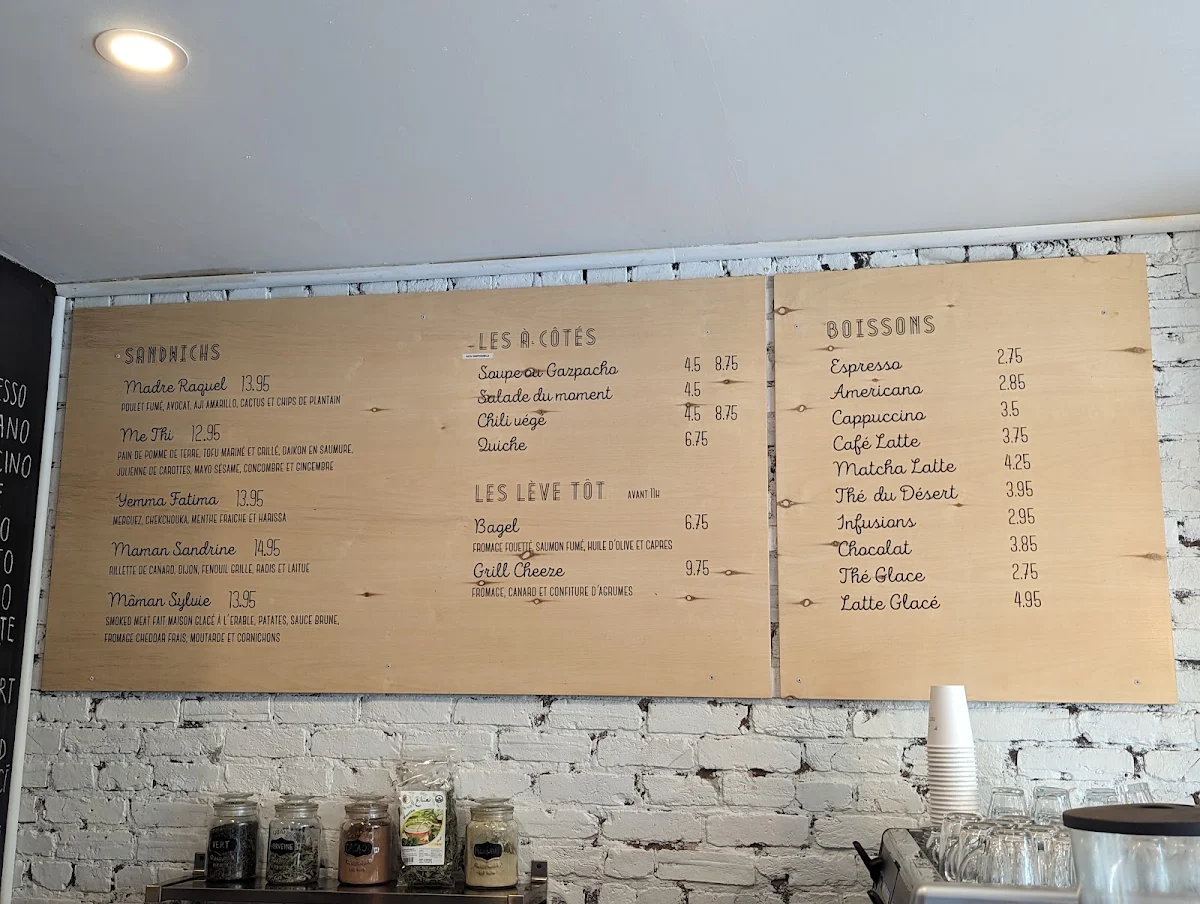 SANDWICHS
Madre Raquel 13.95
POULET FUMÉ, AVOCAT, AJI AMARILLO, CACTUS ET CHIPS DE PLANTAIN
Me Thi 12.95
PAIN DE POMME DE TERRE, TOFU MARINÉ ET GRILLÉ, DAIKON EN SAUMURE,
JULIENNE DE CAROTTES, MAYO SÉSAME, CONCOMBRE ET GINGEMBRE
Yemma Fatima 13.95
MERGUEZ, CHEKCHOUKA, MENTHE FRAICHE ET HARISSA
Maman Sandrine 14.95
RILLETTE DE CANARD, DIJON, FENOUIL GRILLÉ, RADIS ET LAITUE
Môman Sylvie 13.95
SMOKED MEAT FAIT MAISON GLACÉ À L'ÉRABLE, PATATES, SAUCE BRUNE,
FROMAGE CHEDDAR FRAIS, MOUTARDE ET CORNICHONS
LES À CÔTÉS
Soupe ou Gazpacho 4.5 8.75
Salade du moment 4.5
Chili végé 4.5 8.75
Quiche 6.75
LES LÈVE TÔT AVANT 11H
Bagel 6.75
FROMAGE FOUETTÉ, SAUMON FUMÉ, HUILE D'OLIVE ET CAPRES
Grill Cheeze 9.75
FROMAGE, CANARD ET CONFITURE D'AGRUMES
BOISSONS
Espresso 2.75
Americano 2.85
Cappuccino 3.5
Café Latte 3.75
Matcha Latte 4.25
Thé du Désert 3.95
Infusions 2.95
Chocolat 3.85
Thé Glace 2.75
Latte Glacé 4.95
VERT